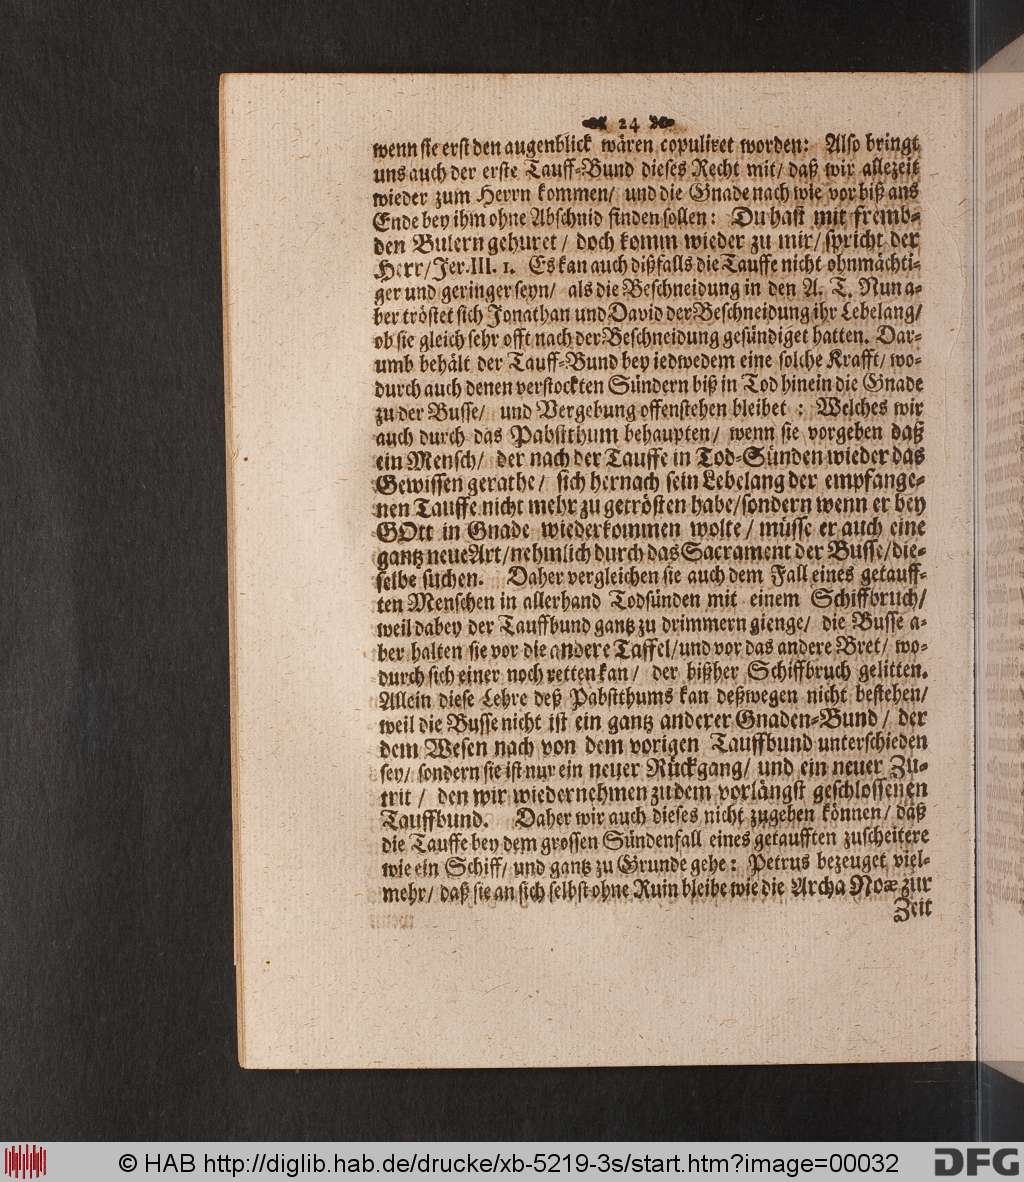 24
wenn sie erst den augenblick wären copuliret worden: Also bringt
uns auch der erste Tauff-Bund dieses Recht mit/ daß wir allezeit
wieder zum Herrn kommen/ und die Gnade nach wie vor biß ans
Ende bey ihm ohne Abschnid finden sollen: Du hast mit fremb-
den Bulern gehuret/ doch komm wieder zu mir/ spricht der
Herr/ Jer. III. 1. Es kan auch dißfalls die Tauffe nicht ohnmächti-
ger und geringer seyn/ als die Beschneidung in den A. T. Nun a-
ber tröstet sich Jonathan und David der Beschneidung ihr Lebelang/
ob sie gleich sehr offt nach der Beschneidung gesündiget hatten. Dar-
umb behält der Tauff-Bund bey iedwedem eine solche Krafft/ wo-
durch auch denen verstockten Sündern biß in Tod hinein die Gnade
zu der Busse/ und Vergebung offenstehen bleibet: Welches wir
auch durch das Pabstthum behaupten/ wenn sie vorgeben daß
ein Mensch/ der nach der Tauffe in Tod-Sünden wieder das
Gewissen gerathe/ sich hernach sein Lebelang der empfange-
nen Tauffe nicht mehr zu getrösten habe/ sondern wenn er bey
GOtt in Gnade wiederkommen wolte/ müsse er auch eine
gantz neue Art/ nehmlich durch das Sacrament der Busse/ die-
selbe suchen. Daher vergleichen sie auch dem Fall eines getauff-
ten Menschen in allerhand Todsünden mit einem Schiffbruch/
weil dabey der Tauffbund gantz zu drimmern gienge/ die Busse a-
ber halten sie vor die andere Taffel/ und vor das andere Bret/ wo-
durch sich einer noch retten kan/ der bißher Schiffbruch gelitten.
Allein diese Lehre deß Pabstthums kan deßwegen nicht bestehen/
weil die Busse nicht ist ein gantz anderer Gnaden-Bund/ der
dem Wesen nach von dem vorigen Tauffbund unterschieden
sey/ sondern sie ist nur ein neuer Rückgang/ und ein neuer Zu-
trit/ den wir wiedernehmen zu dem vorlängst geschlossenen
Tauffbund. Daher wir auch dieses nicht zugeben können/ daß
die Tauffe bey dem grossen Sündenfall eines getaufften zuscheitere
wie ein Schiff/ und gantz zu Grunde gehe: Petrus bezeuget viel-
mehr/ daß sie an sich selbst ohne Ruin bleibe wie die Archa Noæ zur
Zeit
© HAB http://diglib.hab.de/drucke/xb-5219-3s/start.htm?image=00032
DFG